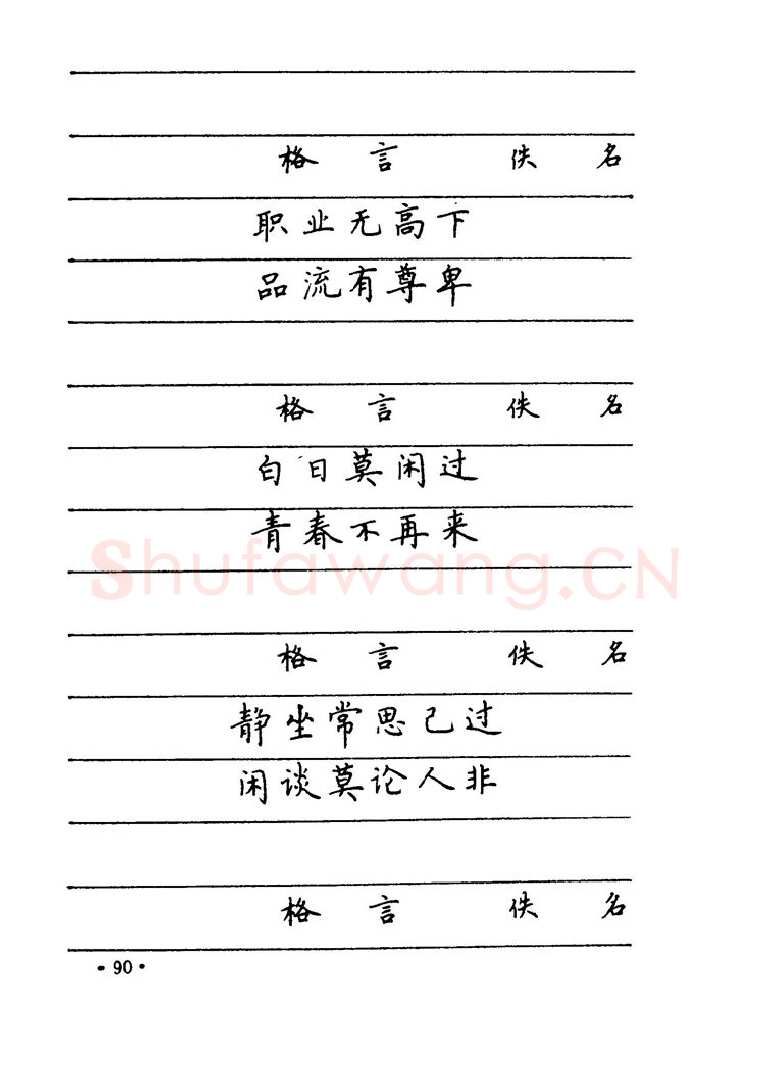 格 言 佚 名
职业无高下
品流有尊卑
格 言 佚 名
白日莫闲过
青春不再来
Shufawang.CN
格 言 佚 名
静坐常思己过
闲谈莫论人非
格 言 佚 名
·90·